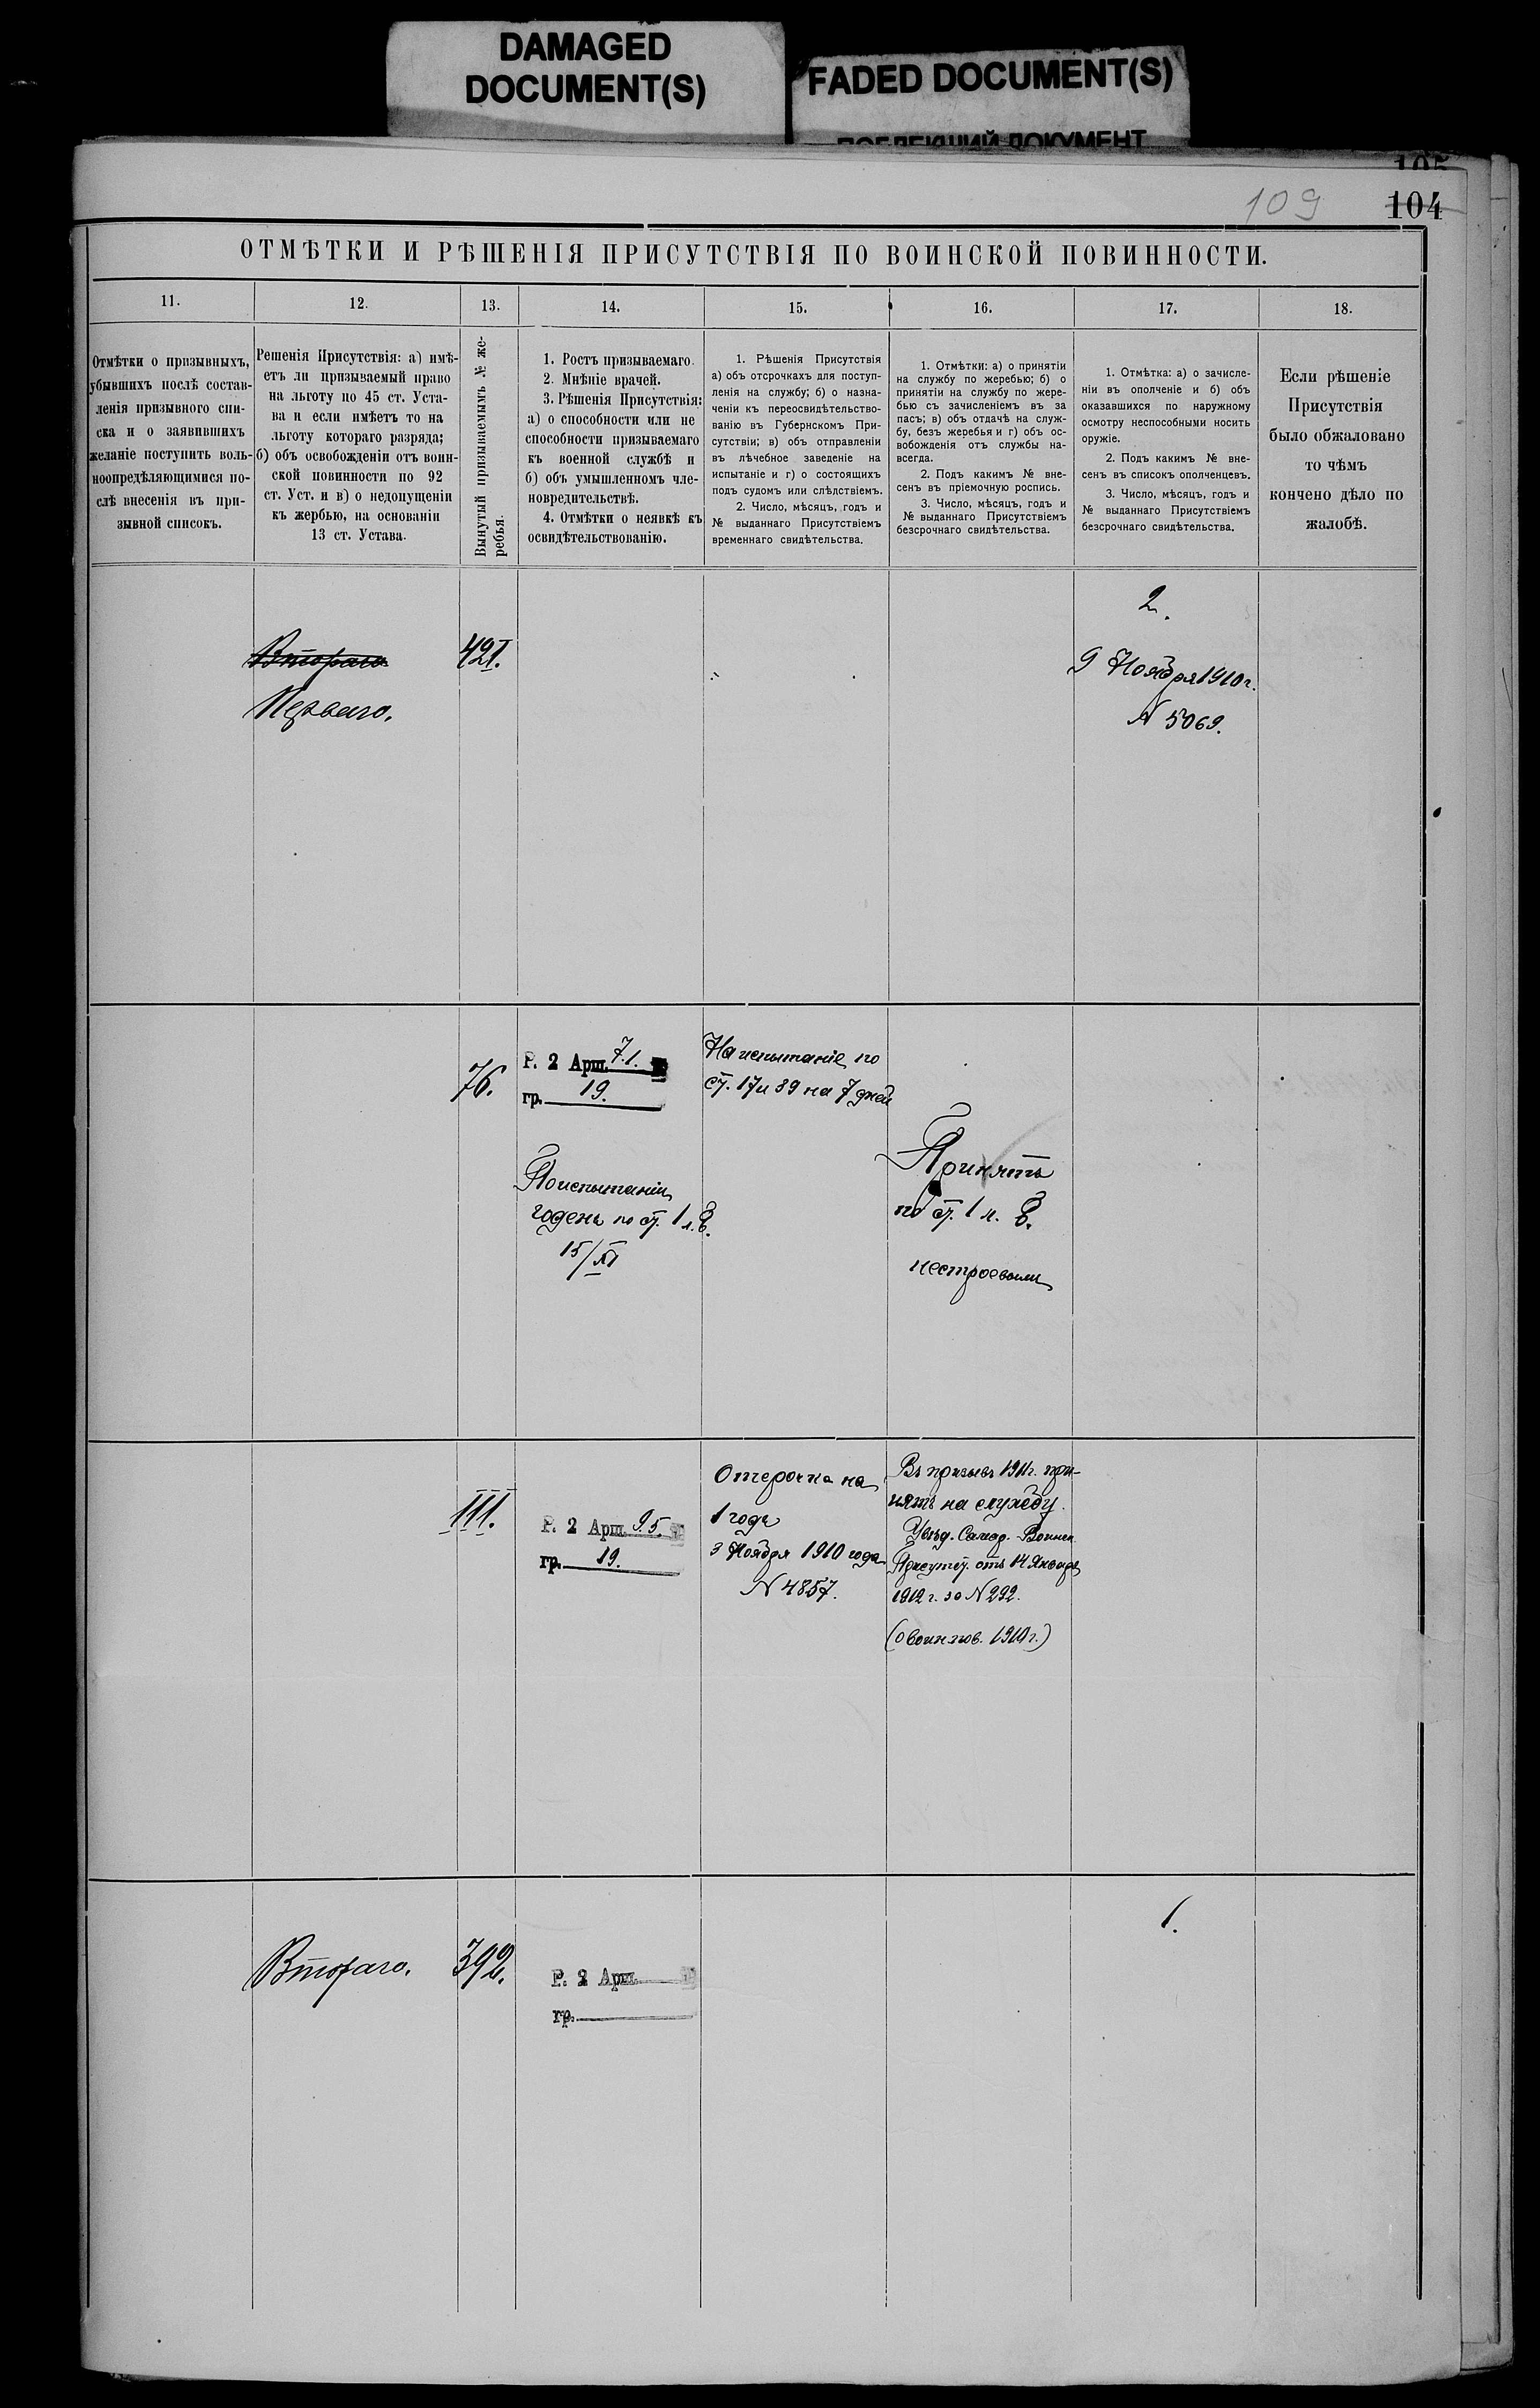 DAMAGED
DOCUMENT(S)
FADED DOCUMENT(S)
ПОБЛЕКШИЙ ДОКУМЕНТ
105
109
104
ОТМѢТКИ И РѢШЕНІЯ ПРИСУТСТВІЯ ПО ВОИНСКОЙ ПОВИННОСТИ.
11.
12.
13.
14.
15.
16.
17.
18.
Отмѣтки о призывныхъ,
убывшихъ послѣ состав-
ленія призывного спи-
ска и о заявившихъ
желаніе поступить воль-
ноопредѣляющимися по-
слѣ внесенія въ при-
зывной списокъ.
Решенія Присутствія: а) имѣ-
етъ ли призываемый право
на льготу по 45 ст. Уста-
ва и если имѣетъ то на
льготу котораго разряда;
б) объ освобожденіи отъ воин-
ской повинности по 92
ст. Уст. и в) о недопущеніи
къ жербью, на основаніи
13 ст. Устава.
Вынутый призываемымъ № же-
ребья.
1. Ростъ призываемаго.
2. Мнѣніе врачей.
3. Рѣшенія Присутствія:
а) о способности или не
способности призываемаго
къ военной службѣ и
б) объ умышленномъ чле-
новредительствѣ.
4. Отмѣтки о неявкѣ къ
освидѣтельствованію.
1. Рѣшенія Присутствія
а) объ отсрочкахъ для поступ-
ленія на службу; б) о назна-
ченіи къ переосвидѣтельство-
ванію въ Губернскомъ При-
сутствіи; в) объ отправленіи
въ лѣчебное заведеніе на
испытаніе и г) о состоящихъ
подъ судомъ или слѣдствіемъ.
2. Число, мѣсяцъ, годъ и
№ выданнаго Присутствіемъ
временнаго свидѣтельства.
1. Отмѣтки: а) о принятіи
на службу по жеребью; б) о
принятіи на службу по жере-
бью съ зачисленіемъ въ за
пасъ; в) объ отдачѣ на служ-
бу, безъ жеребья и г) объ ос-
вобожденія отъ службы на-
всегда.
2. Подъ какимъ № вне-
сенъ въ пріемочную роспись.
3. Число, мѣсяцъ, годъ и
№ выданнаго Присутствіемъ
безсрочнаго свидѣтельства.
1. Отмѣтка: а) о зачисле-
ніи въ ополченіе и б) объ
оказавшихся по наружному
осмотру неспособными носить
оружіе.
2. Подъ какимъ № вне-
сенъ въ списокъ ополченцевъ.
3. Число, мѣсяцъ, годъ и
№ выданнаго Присутствіемъ
безсрочнаго свидѣтельства.
Если рѣшеніе
Присутствія
было обжаловано
то чѣмъ
кончено дѣло по
жалобѣ.
Втораго
Перваго.
421.
2.
9 Ноября 1910 г.
N 5069.
76.
Р. 2 Арш. 7.1.
гр. 19.
По испытаніи
годенъ по ст. 1 л. В.
15/XI
На испытаніе по
ст. 17 и 89 на 7 дней
Принятъ
по ст. 1 л. В.
нестроевымъ
111.
Р. 2 Арш. 9.5.
гр. 19.
Отсрочка на
1 годъ
3 Ноября 1910 года
N 4857.
Въ призывъ 1911 г. при-
нятъ на службу.
Уѣзд. Самар. Воинск.
Присутст. отъ 14 Января
1912 г. за N 292.
(о воин. пов. 1910 г.)
Втораго.
392.
Р. 2 Арш.
гр.
1.